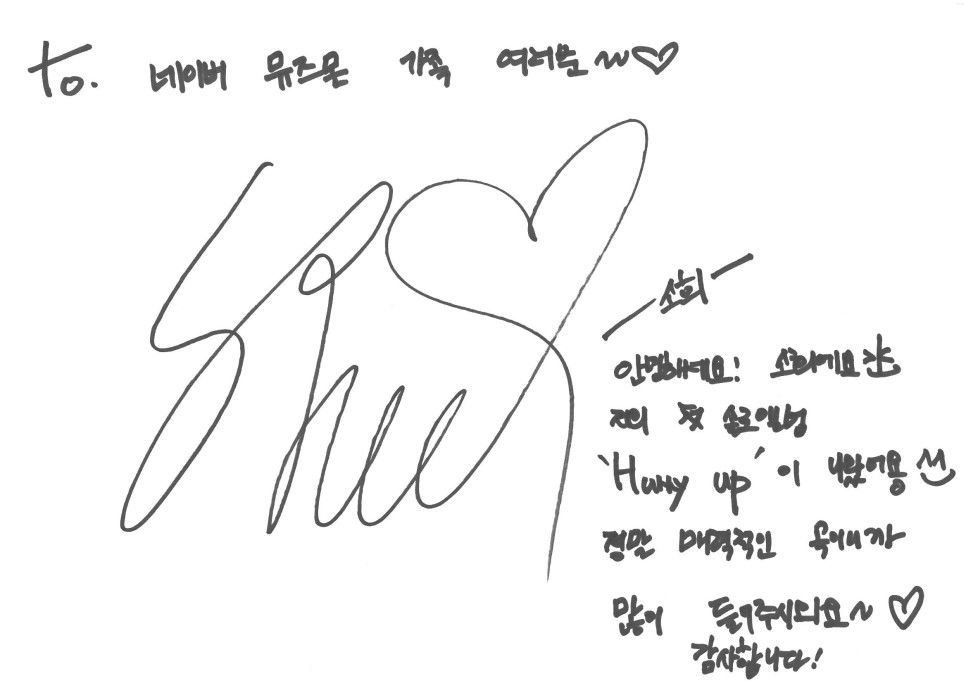 To. 네이버 뮤즈몬 가족 여러분~♡
소희
안녕하세요! 소희에요
저의 첫 솔로앨범
'Hurry up'이 나왔어용
정말 매력적인 곡이니까
많이 들어주시와요~♡
감사합니다!